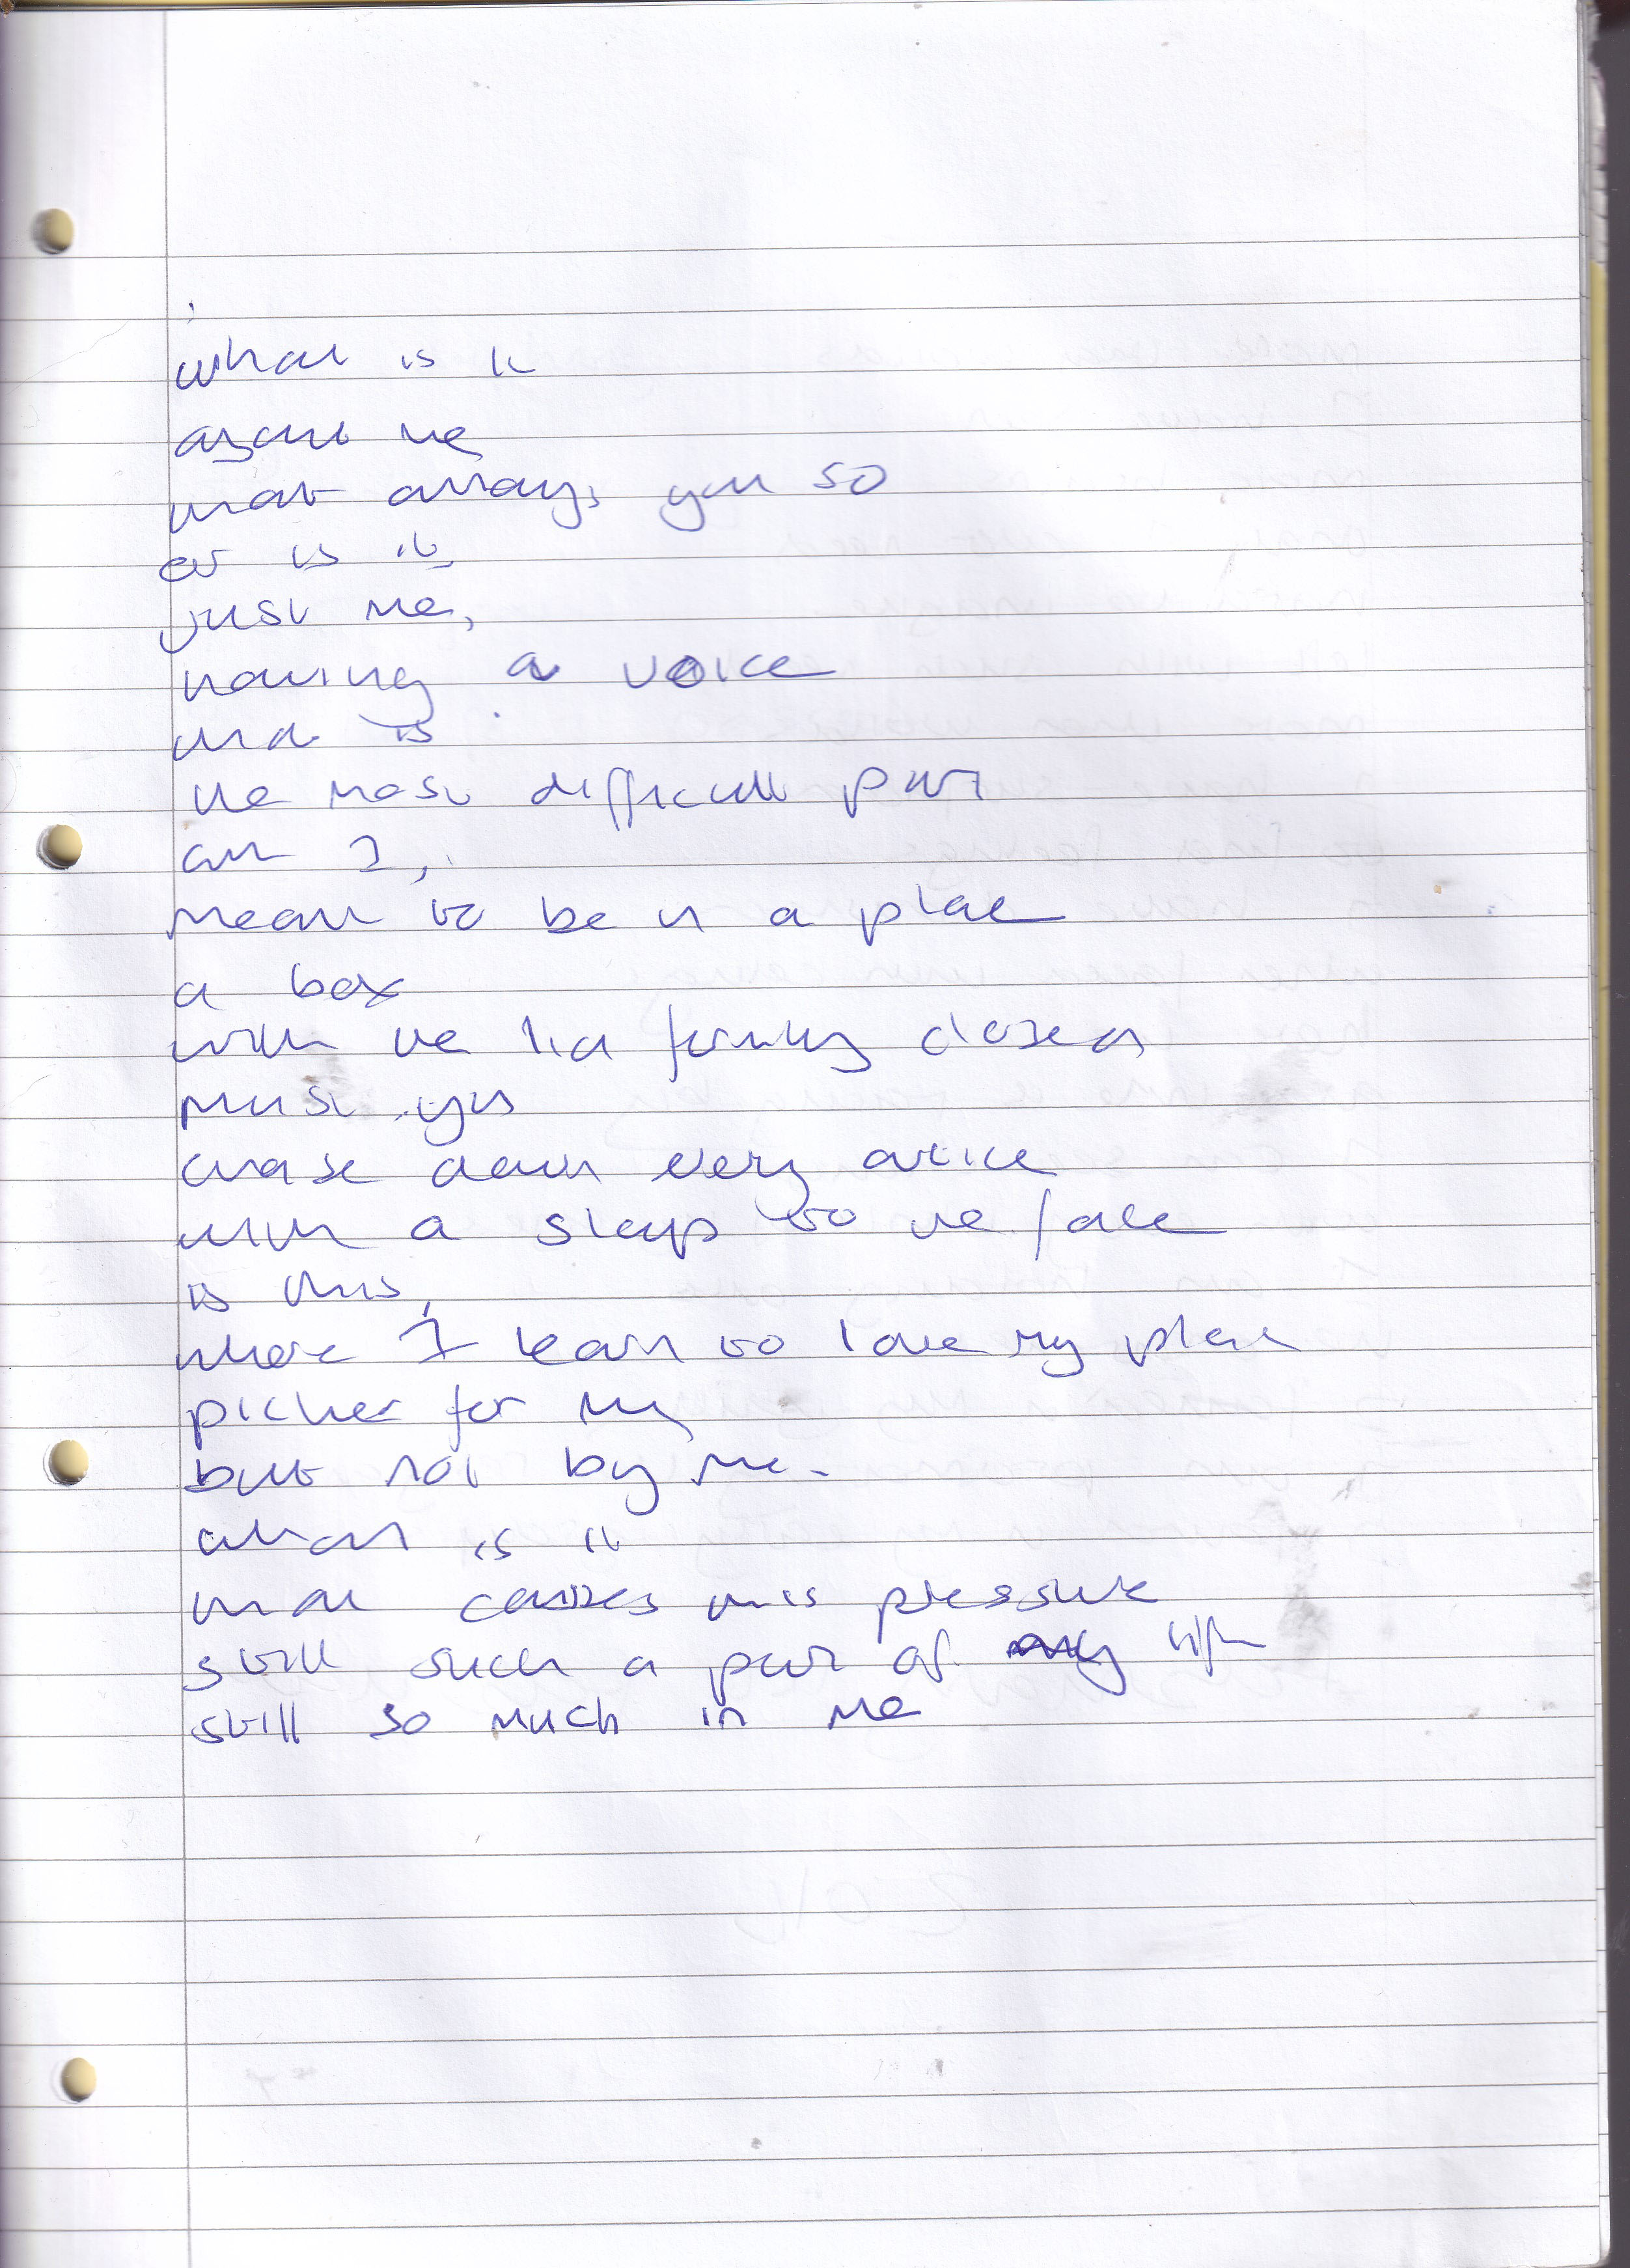 what is it
about me
that annoys you so
or is it,
just me,
having a voice
that is
the most difficult part
am I,
meant to be in a place
a box
with the lid firmly closed
must you
chase down every
with a slap to the face
is this,
where I learn to love my place
picked for my
but not by me.
what is it
that causes this pressure
still such a part of my life
still so much in me